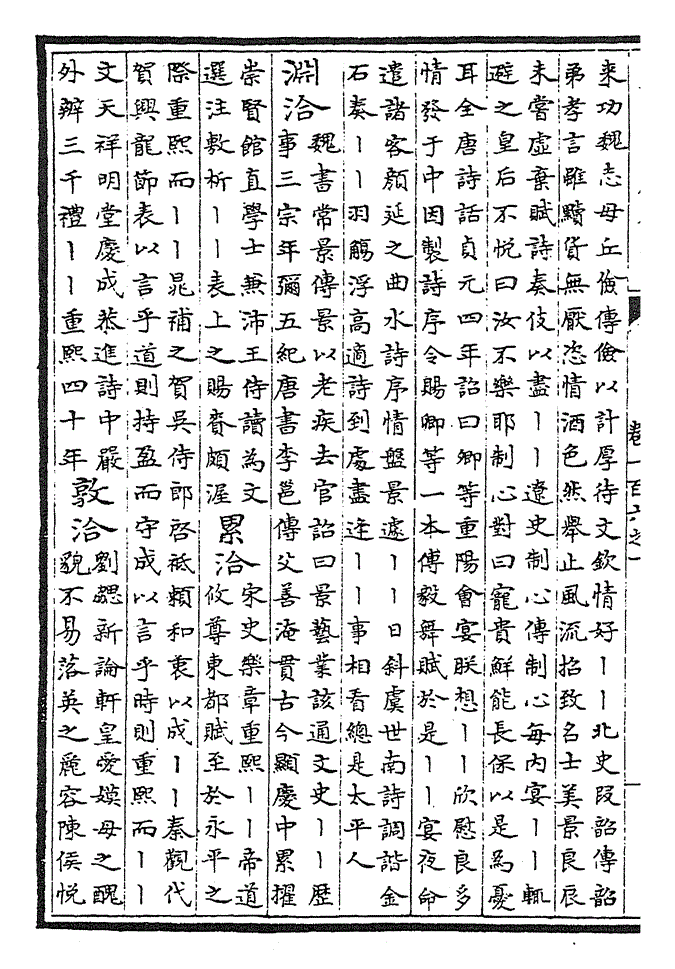 卷一百六之一
來功魏志毋丘儉傳儉以計厚待文欽情好丨丨北史段韶傳韶
弟孝言雖黷貨無厭恣情酒色然舉止風流招致名士美景良辰
未嘗虛棄賦詩奏伎以盡丨丨遼史制心傳制心每內宴丨丨輒
避之皇后不悅曰汝不樂耶制心對曰寵貴鮮能長保以是為憂
耳全唐詩話貞元四年詔曰卿等重陽會宴朕想丨丨欣慰良多
情發于中因製詩序令賜卿等一本傳毅舞賦於是丨丨宴夜命
遣諸客顏延之曲水詩序情盤景遽丨丨日斜虞世南詩調諧金
石奏丨丨羽觴浮高適詩到處盡逢丨丨事相看總是太平人
淵洽
魏書常景傳景以老疾去官詔曰景藝業該通文史丨丨歷
事三宗年彌五紀唐書李邕傳父善淹貫古今顯慶中累擢
崇賢館直學士兼沛王侍讀為文
選注敷析丨丨表上之賜賚頗渥
累洽
宋史樂章重熙丨丨帝道
攸尊東都賦至於永平之
際重熙而丨丨晁補之賀吳侍郎啓祗頖和衷以成丨丨秦觀代
賀興龍節表以言乎道則持盈而守成以言乎時則重熙而丨丨
文天祥明堂慶成恭進詩中嚴
外辦三千禮丨丨重熙四十年
敦洽
劉勰新論軒皇愛嫫母之醜
貌不易落英之麗容陳侯悅